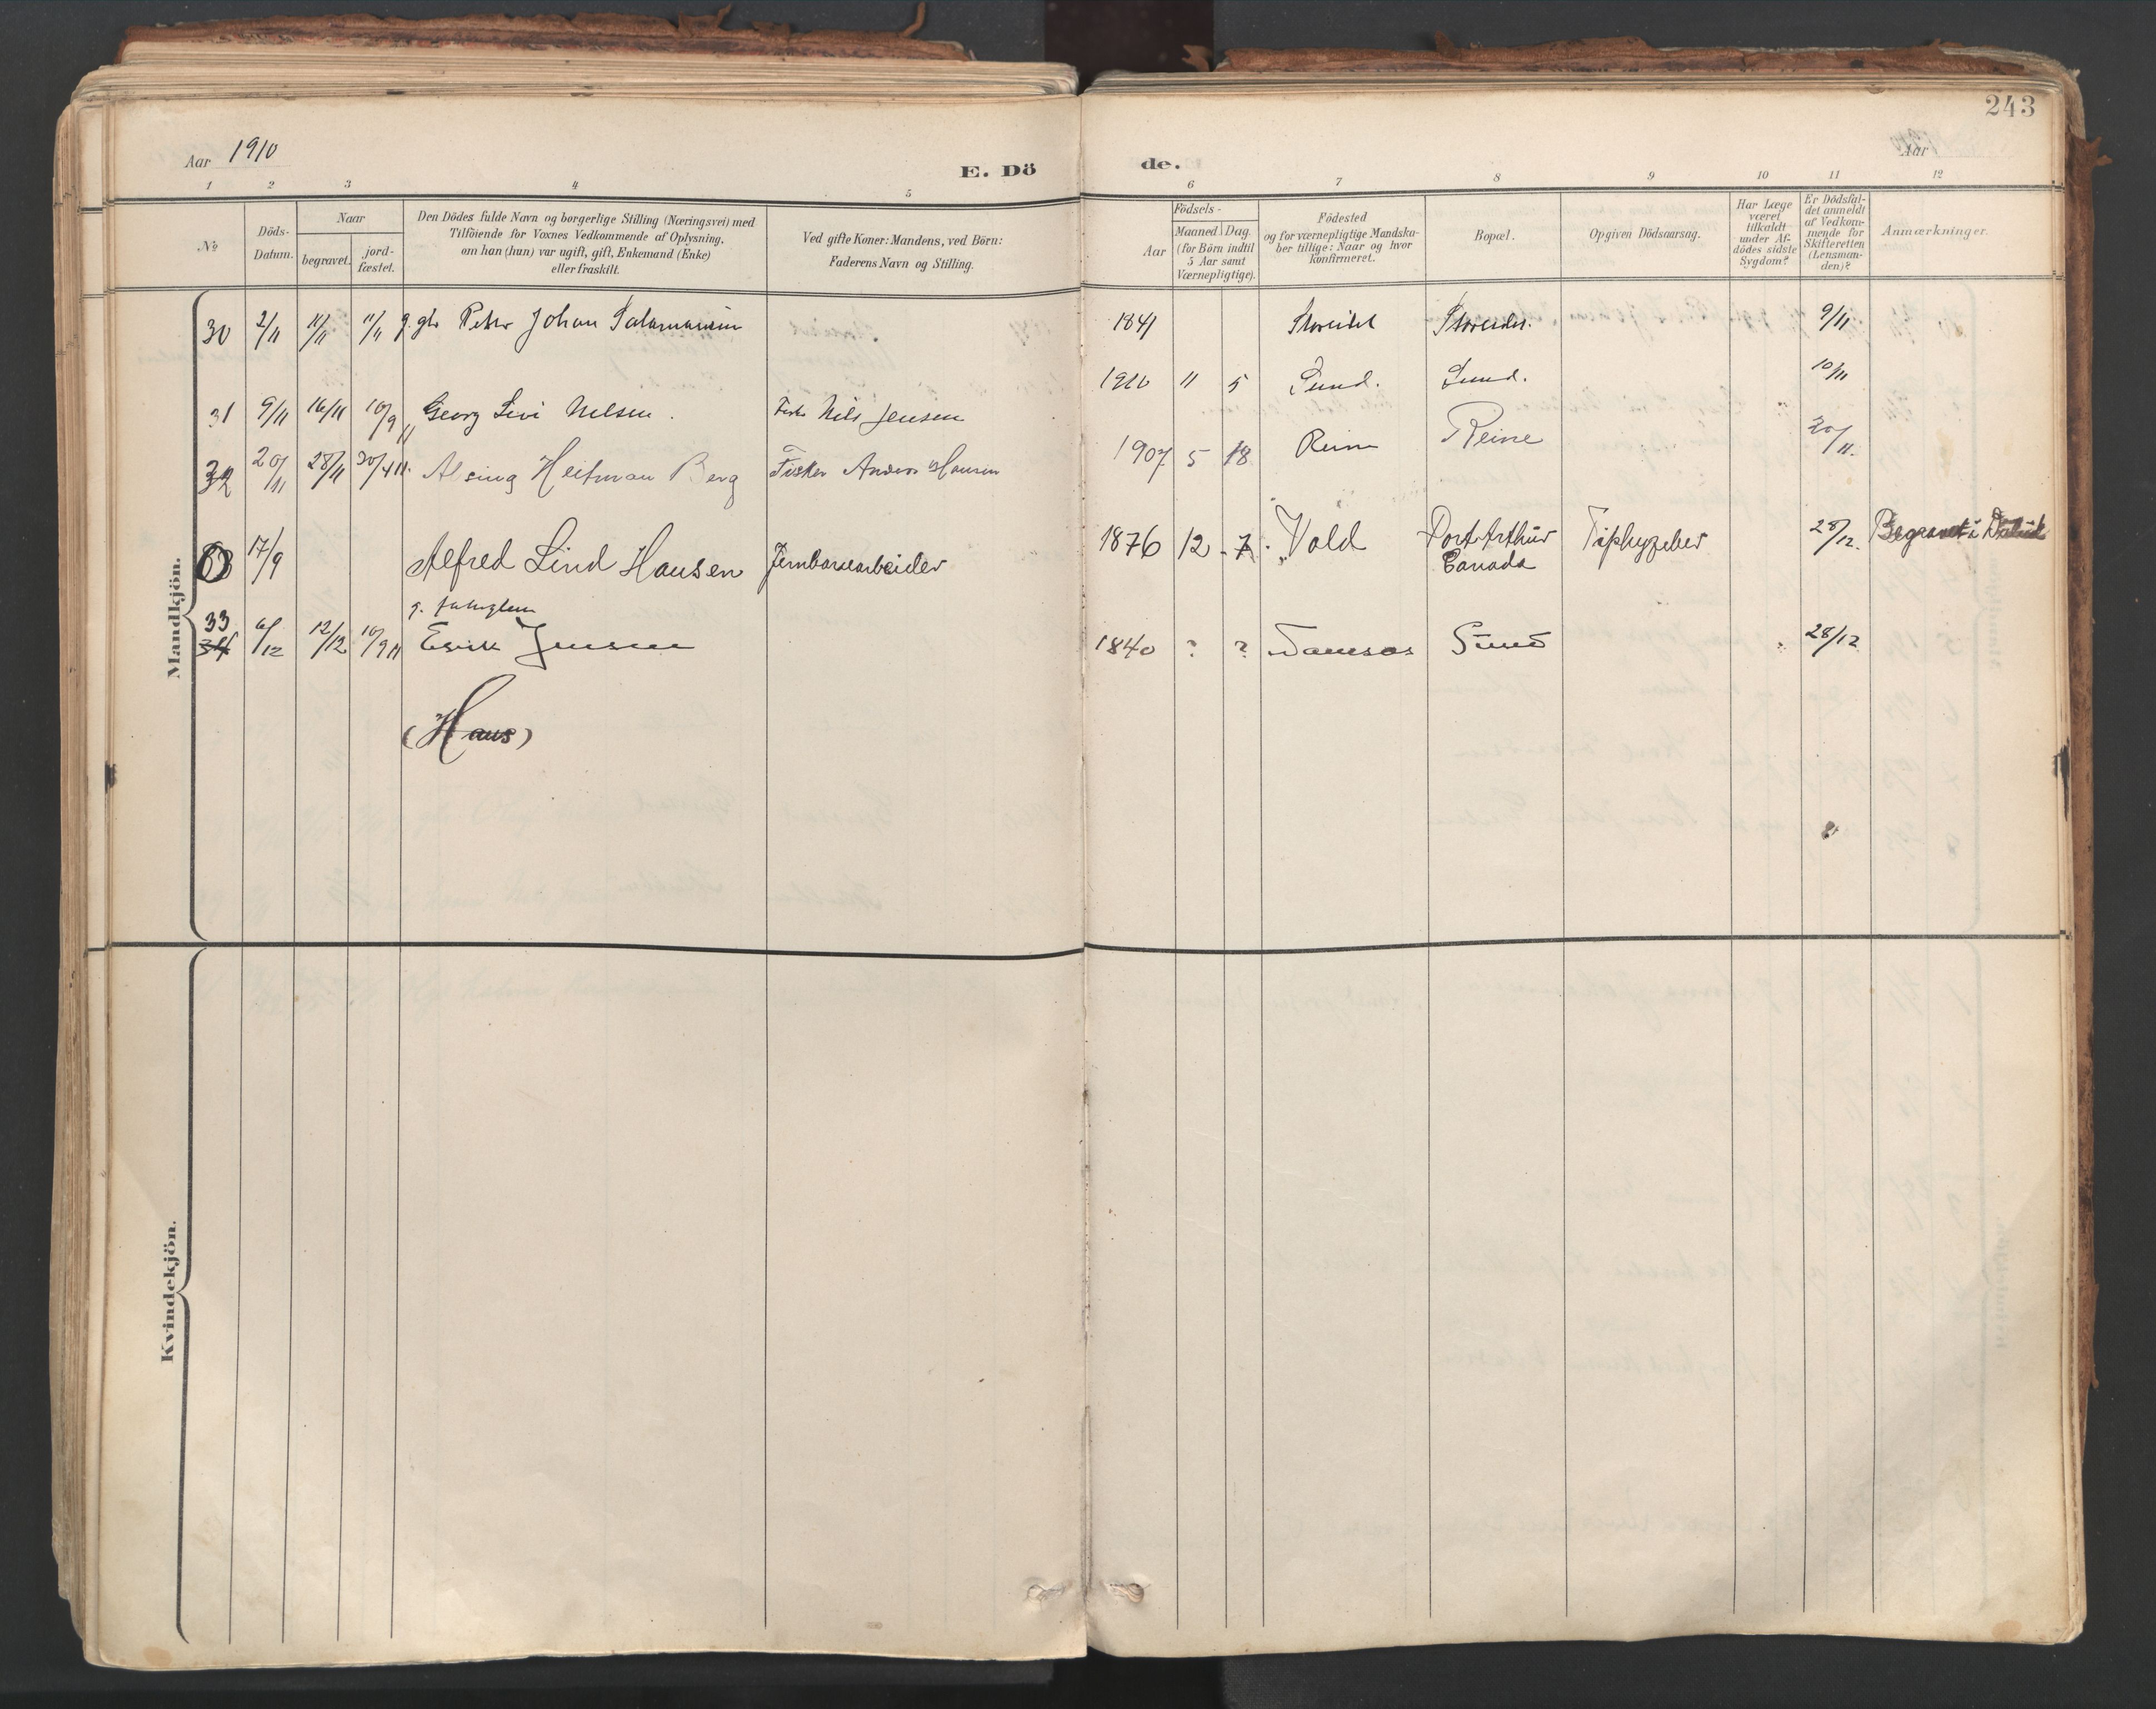 243
Aar 1910
E. Dö
de.
Aar
1 2 3 4 5 6 7 8 9 10 11 12
No
Döds-
Datum.
Naar
begravet.
jord-
fæstet.
Den Dödes fulde Navn og borgerlige Stilling (Næringsvei) med
Tilföiende for Voxnes Vedkommende af Oplysning,
om han (hun) var ugift, gift, Enkemand (Enke)
eller fraskilt.
Ved gifte Koner: Mandens, ved Börn:
Faderens Navn og Stilling.
Födsels-
Aar
Maaned Dag.
(for Börn indtil
5 Aar samt
Værnepligtige).
Födested
og for værnepligtige Mandska-
ber tillige: Naar og hvor
konfirmeret.
Bopæl.
Opgiven Dödsaarsag.
Har Læge
været
tilkaldt
under Af-
dödes sidste
Sygdom?
Er Dödsfal-
det anmeldt
af Vedkom-
mende for
Skifteretten
(Lensman-
den)?
Anmærkninger.
Mandkjön.
30 2/11 11/11 11/11 Peter Johan 1841 9/11
31 9/11 16/11 10/9 11 Georg Levi Nilsen. Nils Jensen 1910 11 5 Sund. Sund. 10/11
32 20/11 28/11 30/4 11. Alsing Heitman Berg Fisker Anders Hansen 1907 5 18 Reine Reine 20/11.
17/9 Alfred Lind Hansen Jernbanearbeider 1876 12 7. Vold Port Arthur
Canada 28/12. Begravet i
33
34 6/12 12/12 10/9 11 Erik Jensen 1840 ? ? Sund 28/12
(Hans)
Kvindekjön.